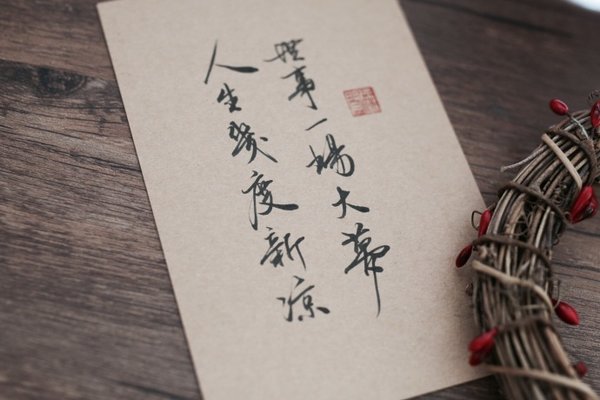 世事一场大幕
人生几度新凉